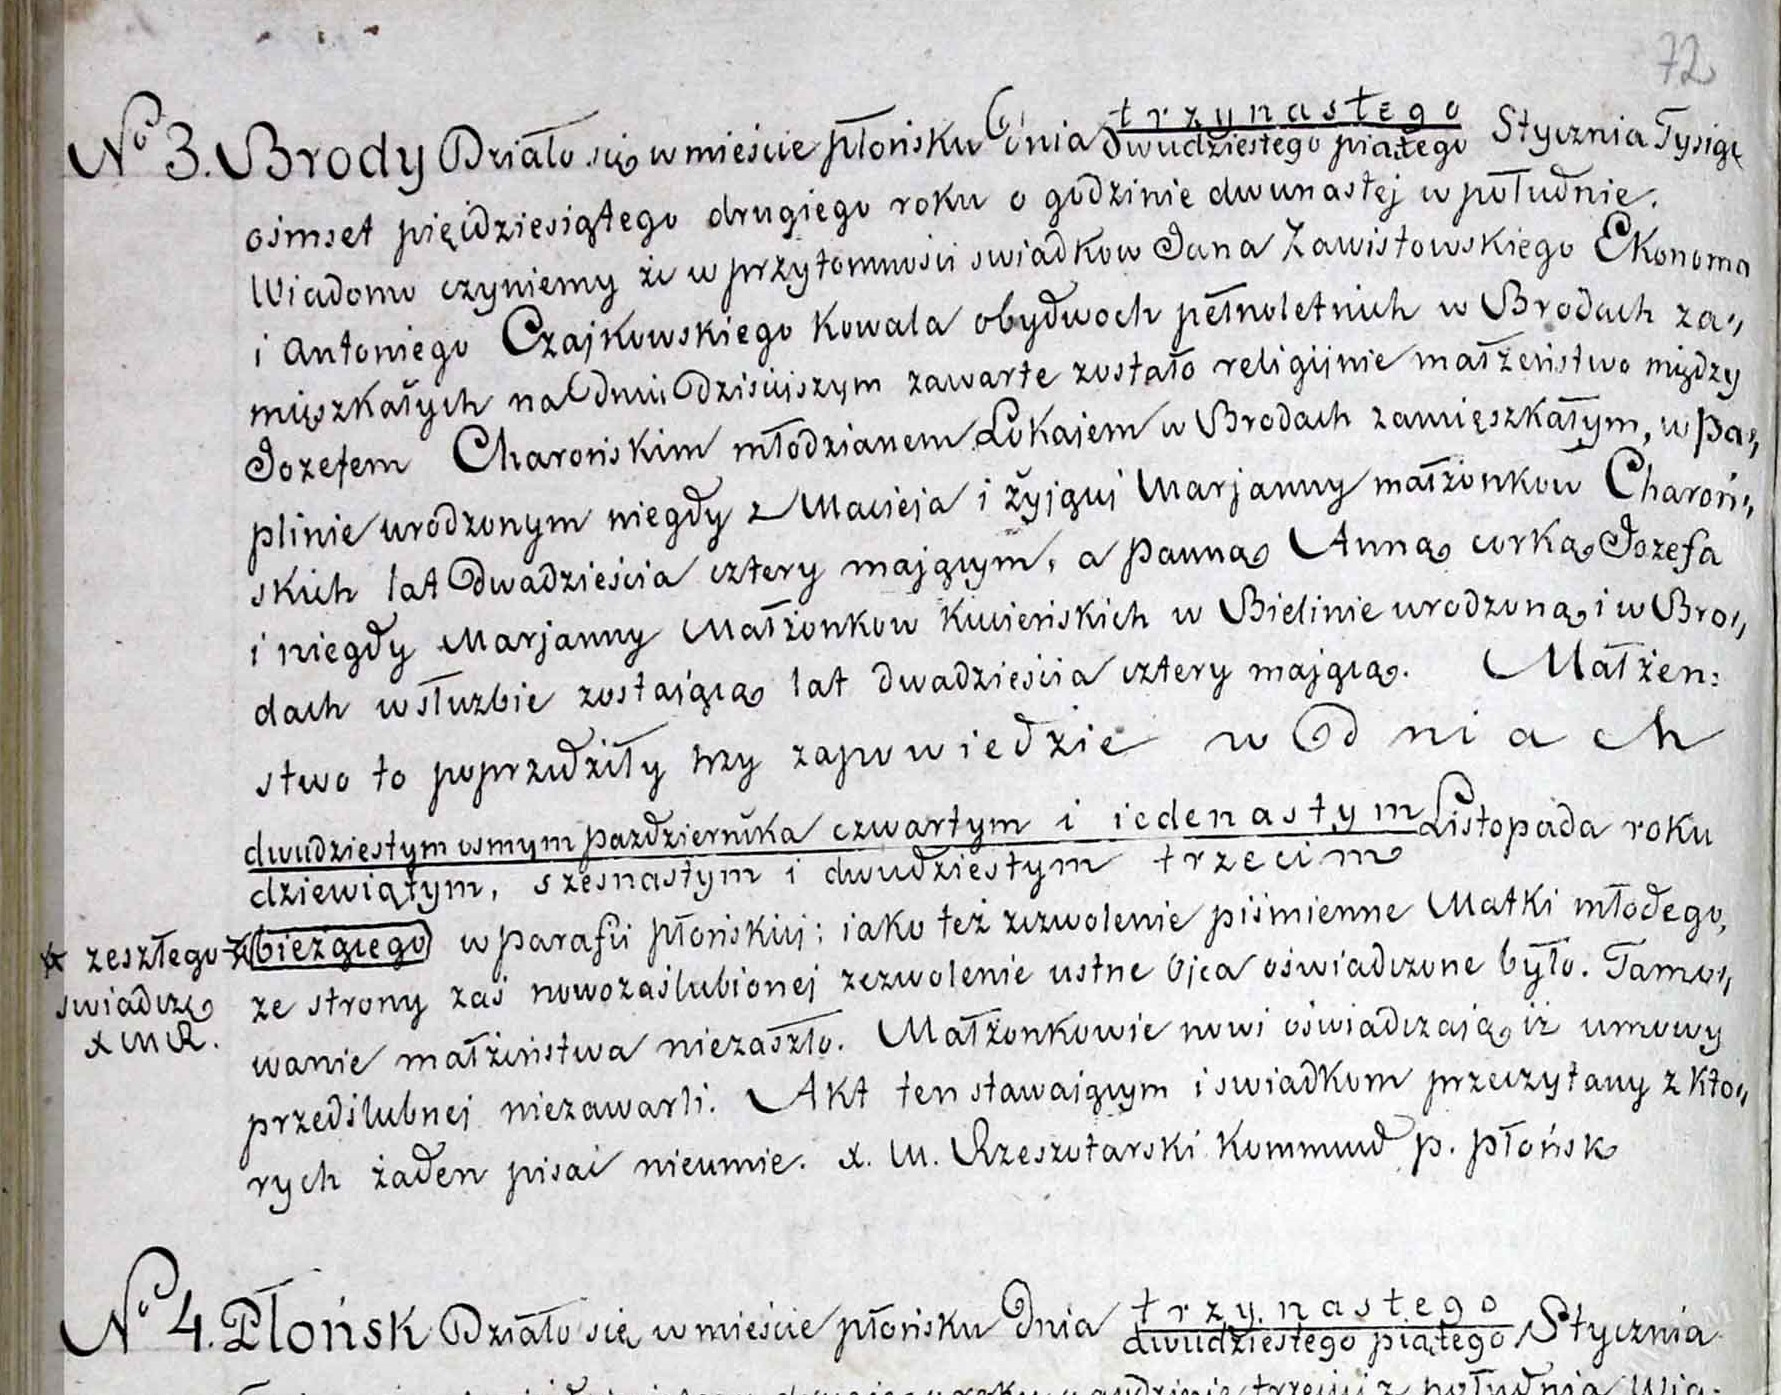 72
No 3. Brody Działo się w mieście płońsku Dnia trzynastego Stycznia Tysiąc
dwudziestego piątego
ośmset pięćdziesiątego drugiego roku o godzinie dwunastej w południe.
Wiadomo czyniemy że w przytomności swiadkow Jana Zawistowskiego Ekonoma
i Antoniego Czajkowskiego Kowala obydwoch pełnoletnich w Brodach za„
mięszkałych na dniu dzisiejszym zawarte zostało religijnie małżeństwo między
Jozefem Charońskim młodzianem Lokajem w Brodach zamięszkałym, w Pa„
plinie urodzonym niegdy z Macieja i żyjącej Marjanny małżonkow Charoń„
skich lat Dwadzieścia cztery mającym, a panną Anną corką Jozefa
i niegdy Marjanny Małżonkow Kwieńskich w Bielinie urodzoną i w Bro„
dach w służbie zostaiącą lat dwadzieścia cztery mającą. Małżen:
stwo to poprzedziły trzy zapowiedzie w Dniach
dwudziestym osmym pazdziernika czwartym i iedenastym Listopada roku
dziewiątym, szesnastym i dwudziestym trzecim
x zeszłego x bieżącego w parafii płońskiej: iako też zezwolenie piśmienne Matki młodego,
swiadczę ze strony zaś nowozaślubionej zezwolenie ustne Ojca oświadczone było. Tamo„
x M R. wanie małżeństwa niezaszło. Małżonkowie nowi oświadczają iż umowy
przedślubnej niezawarli. Akt ten stawaiącym i swiadkom przeczytany z kto„
rych żaden pisać nieumie. x. M. Rzeszotarski Kommend p. płońsk
No 4. Płońsk Działo się w mieście płońsku Dnia trzynastego Stycznia
dwudziestego piątego